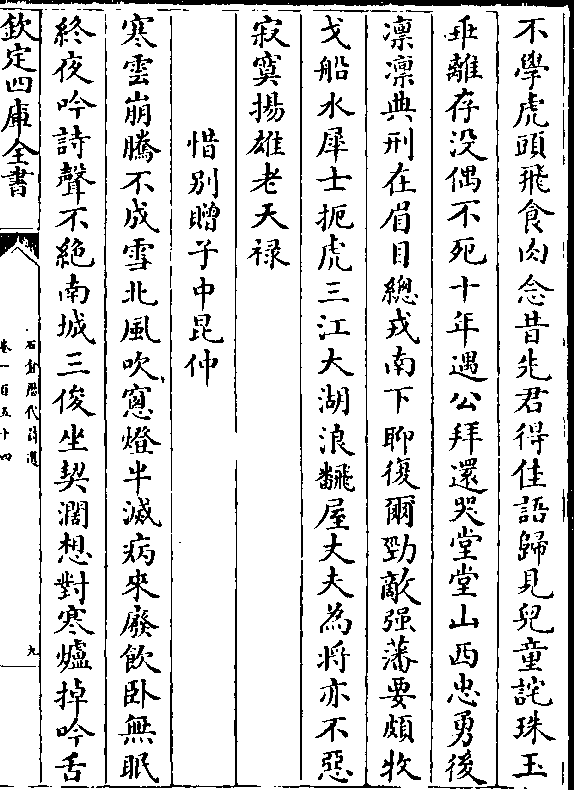 不學虎頭飛食肉念昔先君得佳語歸見兒童詫珠玉
乖離存没偶不死十年遇公拜還哭堂堂山西忠勇後
凛凛典刑在眉目總戎南下聊復爾勁敵强藩要頗牧
戈船水犀士扼虎三江大湖浪飜屋丈夫為將亦不惡
寂寞揚雄老天禄
惜别贈子中昆仲
寒雲崩騰不成雪北風吹窻燈半滅病來廢飲卧無眠
終夜吟詩聲不絶南城三俊坐契濶想對寒爐掉吟舌
欽定四庫全書
石倉歴代詩選
卷一百五十四
九